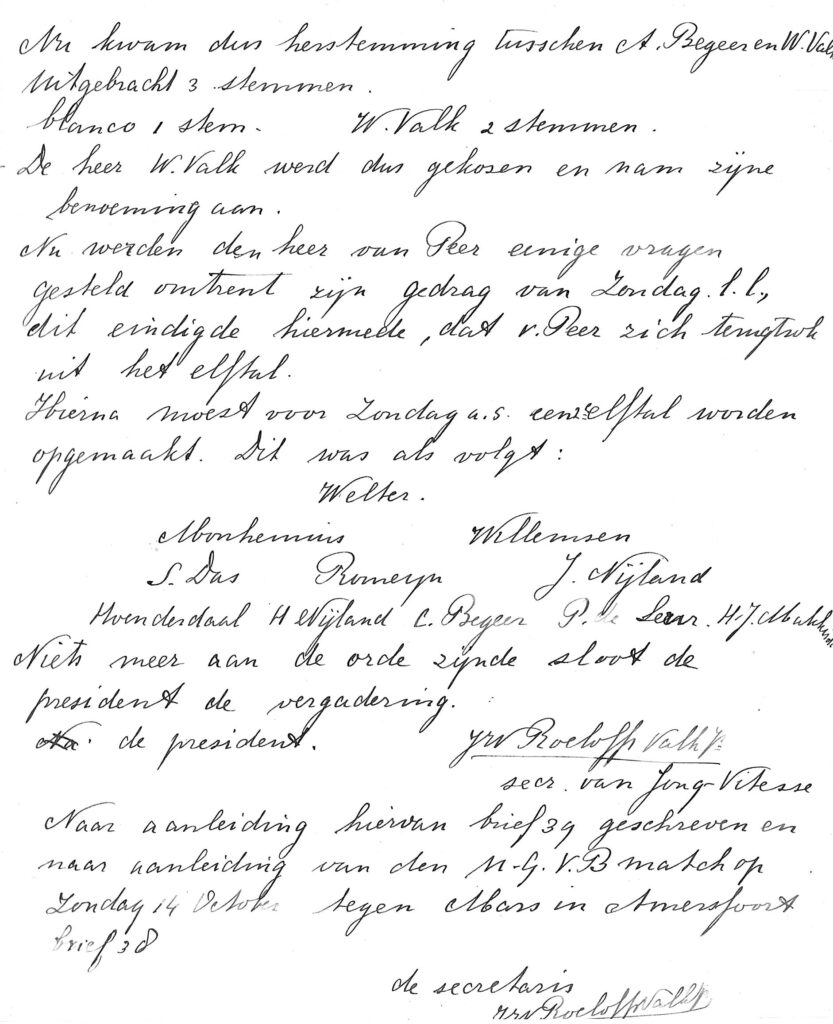 Nu kwam dus herstemming tusschen A. Begeer en W. Valk
Uitgebracht 3 stemmen.
blanco 1 stem. W. Valk 2 stemmen.
De heer W. Valk werd dus gekosen en nam zijne
benoeming aan.
Nu werden den heer van Peer eenige vragen
gesteld omtrent zijn gedrag van Zondag. l.l.,
dit eindigde hiermede, dat v. Peer zich terugtrok
uit het elftal.
Hierna moest voor Zondag a.s. een 2e elftal worden
opgemaakt. Dit was als volgt:
Welter.
Monhemius Willemsen
S. Das Romeyn J. Nijland
Hoenderdaal H Nijland C. Begeer P. de Leur. H.J.
Niets meer aan de orde zijnde sloot de
president de vergadering.
Na. de president. Roeloffs Valk
secr. van Jong-Vitesse
Naar aanleiding hiervan brief 39 geschreven en
naar aanleiding van den N.G.V.B match op
Zondag 14 October tegen Mars in Amersfoort
brief 38
de secretaris
Roeloffs Valk